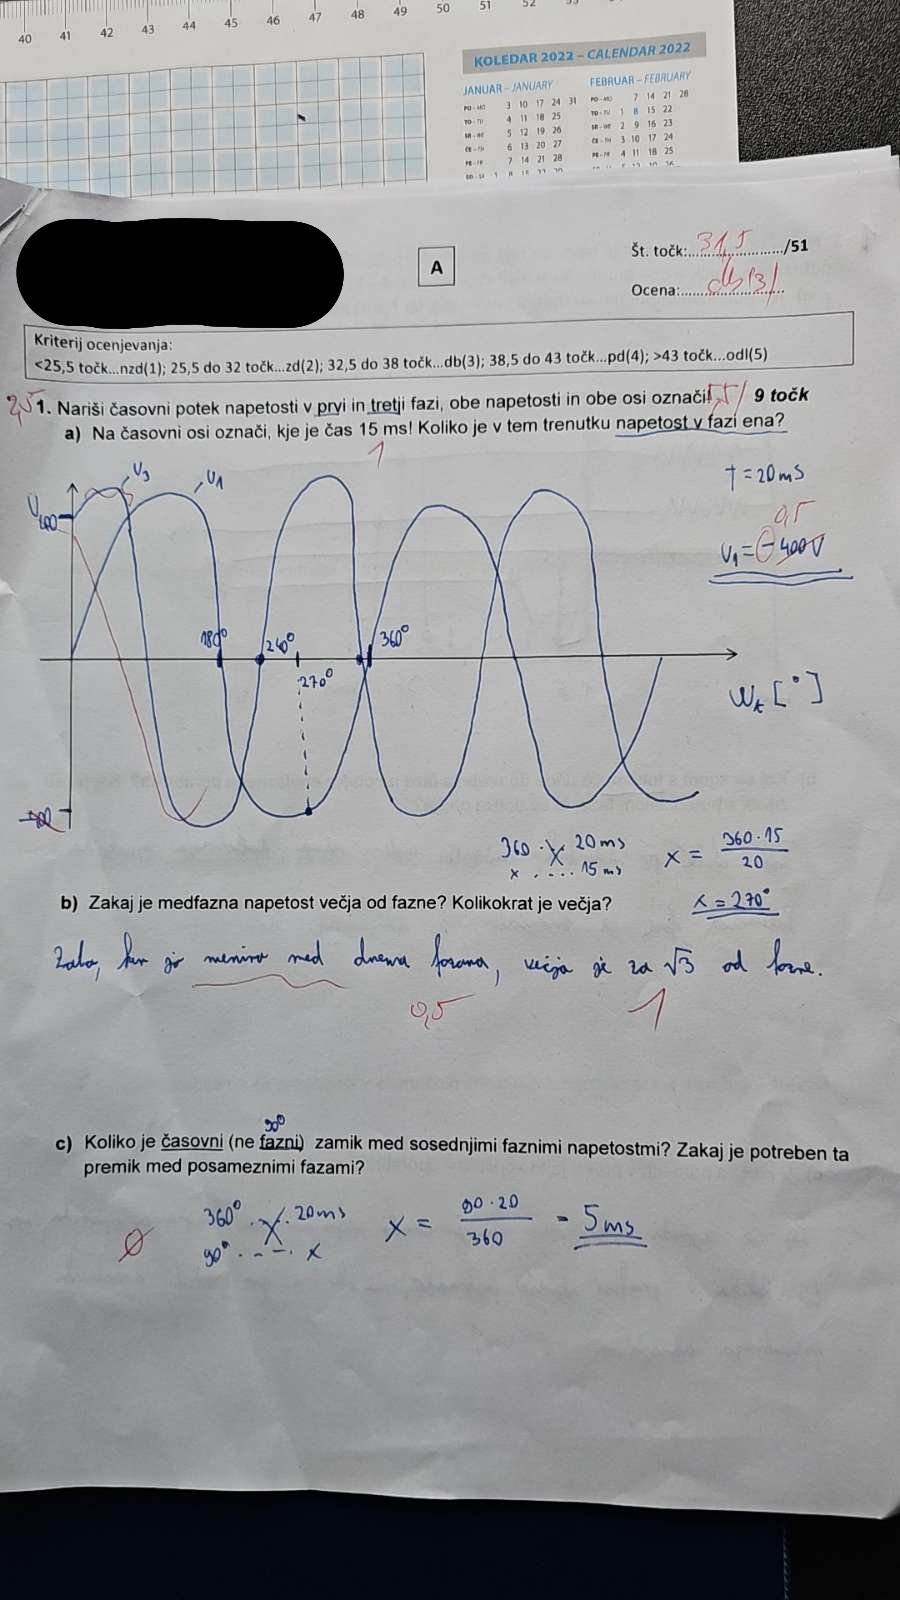 40 41 42 43 44 45 46 47 48 49 50 51 52
KOLEDAR 2022 – CALENDAR 2022
JANUAR – JANUARY
PO - MO 3 10 17 24 31
TO - TU 4 11 18 25
SR - WE 5 12 19 26
ČE - TH 6 13 20 27
PE - FR 7 14 21 28
FEBRUAR – FEBRUARY
PO - MO 7 14 21 28
TO - TU 1 8 15 22
SR - WE 2 9 16 23
ČE - TH 3 10 17 24
PE - FR 4 11 18 25
A
Št. točk: 31,5 /51
Ocena: db(3)
Kriterij ocenjevanja:
<25,5 točk...nzd(1); 25,5 do 32 točk...zd(2); 32,5 do 38 točk...db(3); 38,5 do 43 točk...pd(4); >43 točk...odl(5)
2,5 1. Nariši časovni potek napetosti v prvi in tretji fazi, obe napetosti in obe osi označi! 5,5/ 9 točk
a) Na časovni osi označi, kje je čas 15 ms! Koliko je v tem trenutku napetost v fazi ena?
1
U
400
U3
U1
T = 20 ms
0,5
U1 = -400V
180°
240°
270°
360°
ωt [°]
360 . . 20 ms
x . . . . 15 ms
x = 360 · 15 / 20
x = 270°
b) Zakaj je medfazna napetost večja od fazne? Kolikokrat je večja?
Zato, ker je med dvema fazama, večja je za √3 od fazne.
0,5
1
90°
c) Koliko je časovni (ne fazni) zamik med sosednjimi faznimi napetostmi? Zakaj je potreben ta
premik med posameznimi fazami?
0
360° . . 20 ms
90° . - - . x
x = 90 · 20 / 360 = 5 ms